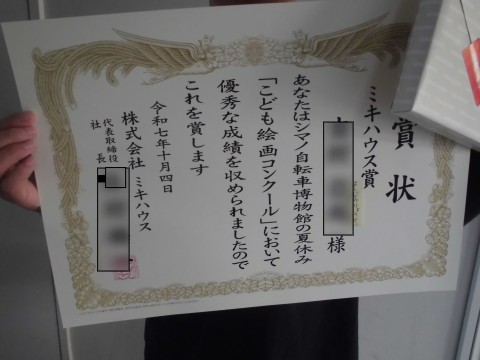 賞状
ミキハウス賞
様
あなたはシマノ自転車博物館の夏休み
「こども絵画コンクール」において
優秀な成績を収められましたので
これを賞します
令和七年十月四日
株式会社 ミキハウス
代表取締役
社長